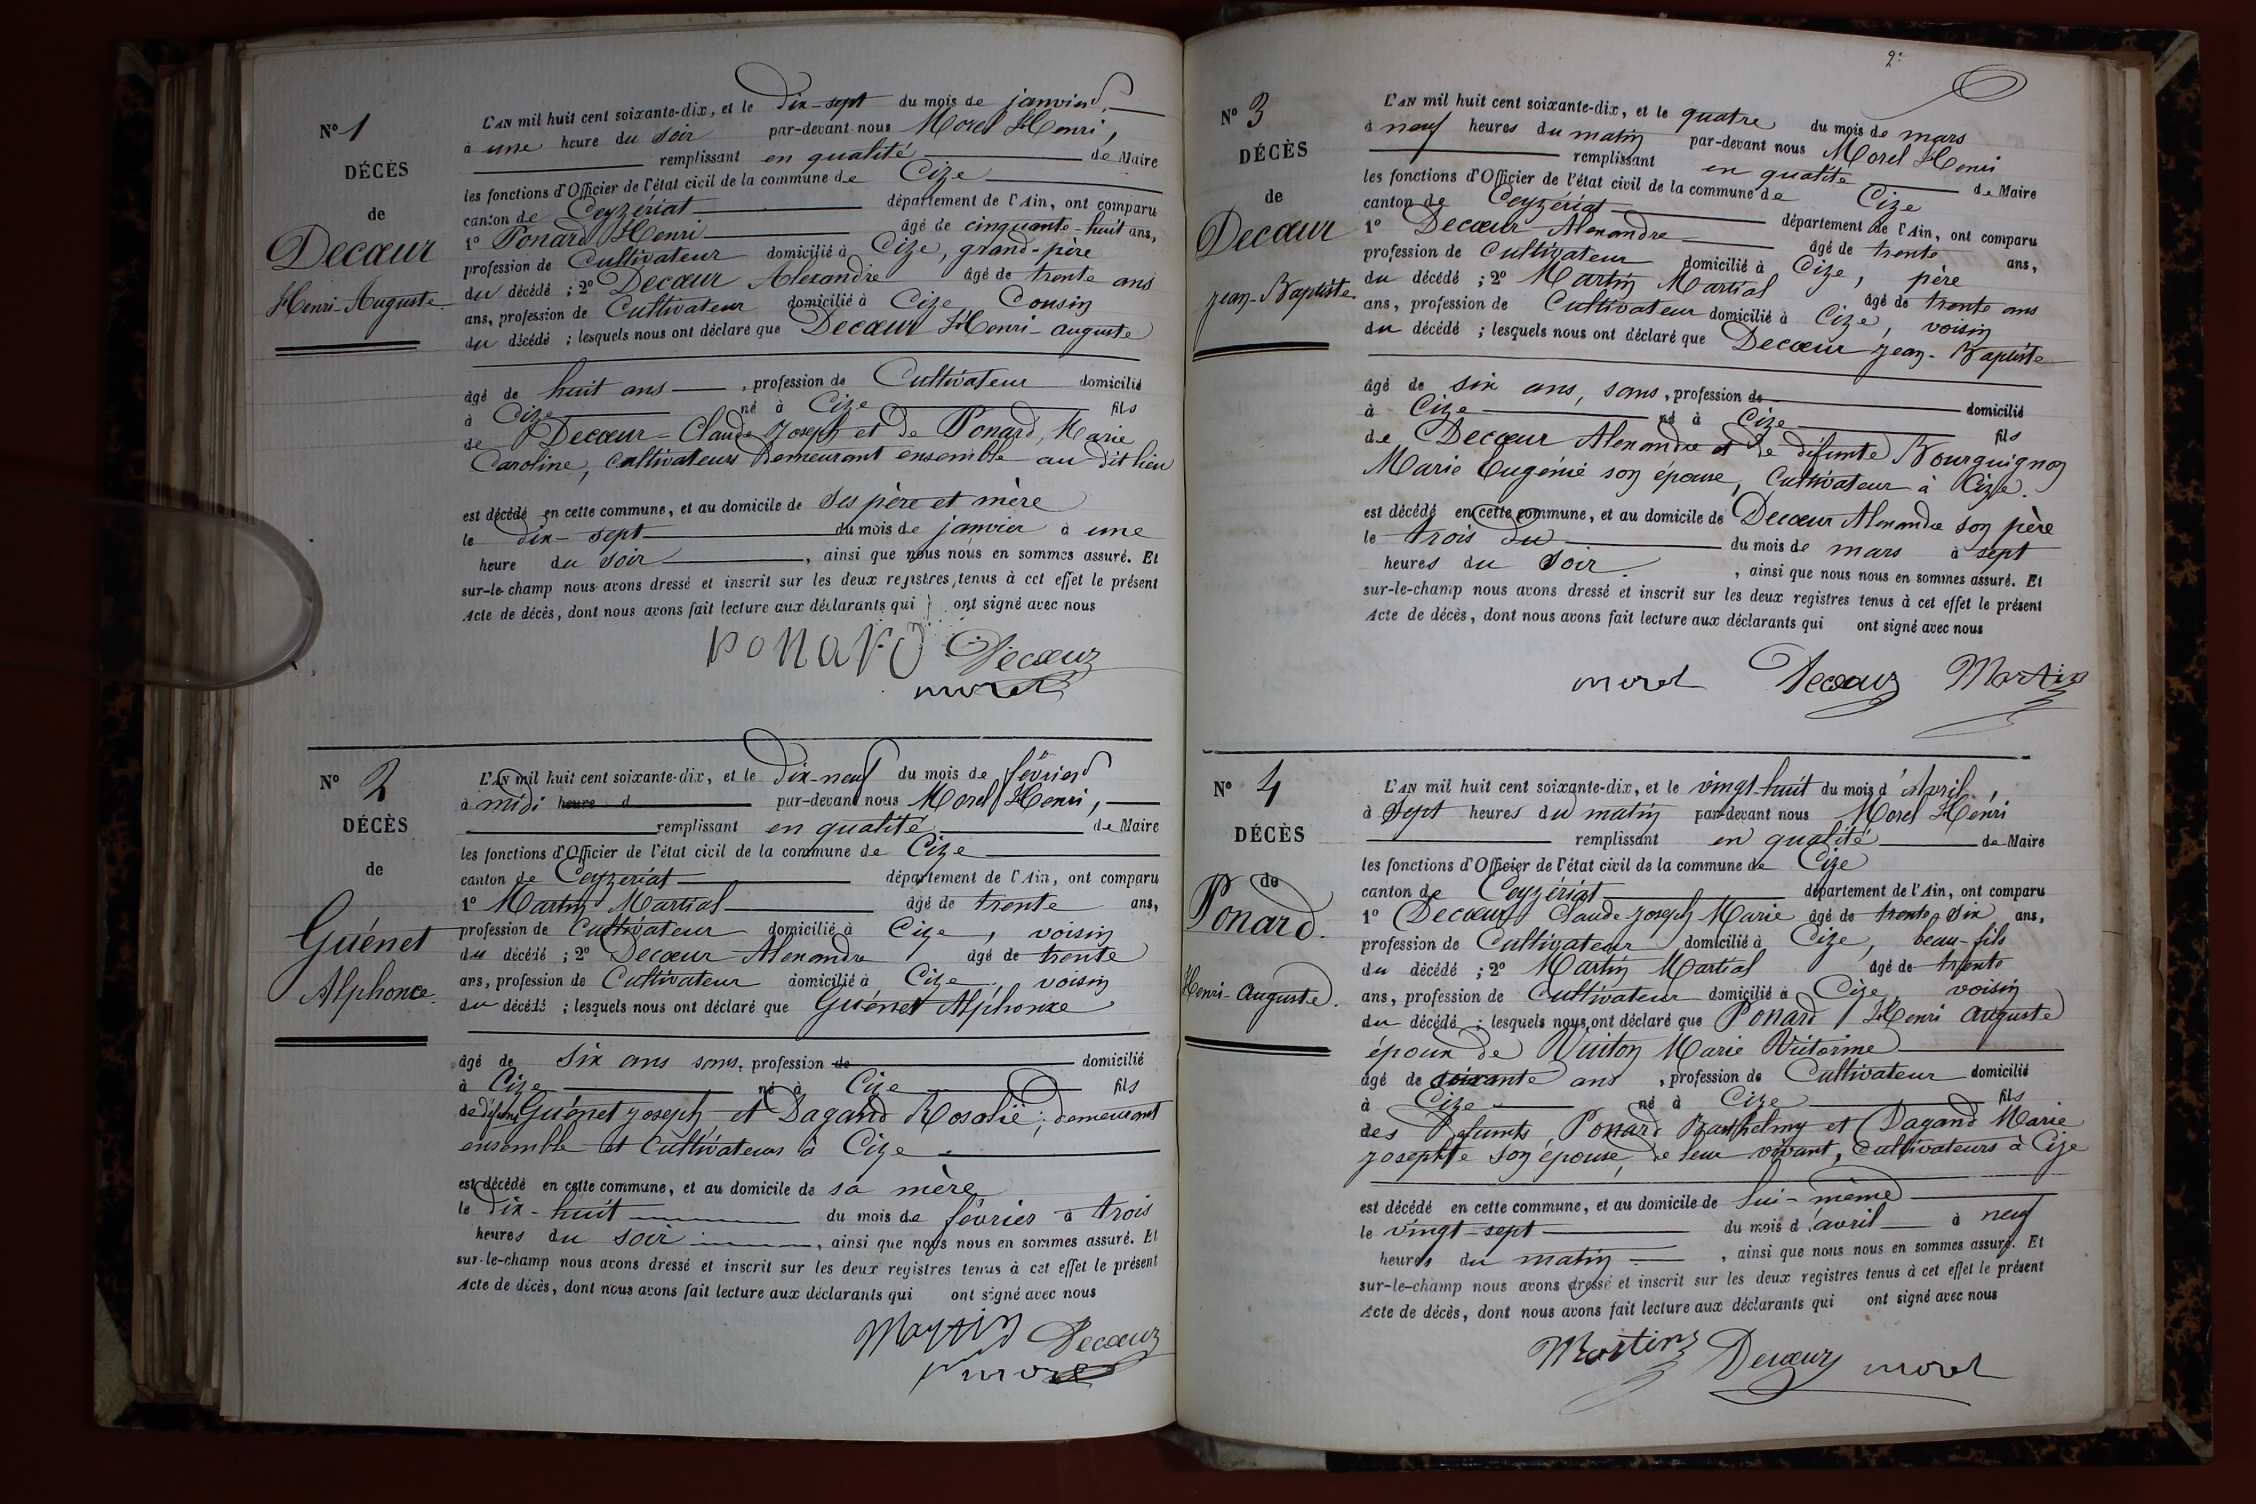 N° 1
DÉCÈS
de
Decœur
Henri-Auguste
L'AN mil huit cent soixante-dix, et le dix-sept du mois de janvier,
à une heure du soir par-devant nous Morel Henri,
remplissant en qualité de Maire
les fonctions d'Officier de l'état civil de la commune de Cize
canton de Ceyzériat département de l'Ain, ont comparu
1° Ponard Henri âgé de cinquante-huit ans,
profession de Cultivateur domicilié à Cize, grand-père
du décédé ; 2° Decœur Alexandre âgé de trente ans
ans, profession de Cultivateur domicilié à Cize Cousin
du décédé ; lesquels nous ont déclaré que Decœur Henri-auguste
âgé de huit ans , profession de Cultivateur domicilié
à Cize né à Cize fils
de Decœur Claude Joseph et de Ponard, Marie
Caroline, cultivateurs demeurant ensemble au dit lieu
est décédé en cette commune, et au domicile de ses père et mère
le dix-sept du mois de janvier à une
heure du soir , ainsi que nous nous en sommes assuré. Et
sur-le-champ nous avons dressé et inscrit sur les deux registres, tenus à cet effet le présent
Acte de décès, dont nous avons fait lecture aux déclarants qui ont signé avec nous
Ponard Decœur
morel
N° 2
DÉCÈS
de
Guénet
Alphonce.
L'AN mil huit cent soixante-dix, et le dix-neuf du mois de février
à midi heure d par-devant nous Morel Henri,
remplissant en qualité de Maire
les fonctions d'Officier de l'état civil de la commune de Cize
canton de Ceyzeriat département de l'Ain, ont comparu
1° Martin Martial âgé de trente ans,
profession de Cultivateur domicilié à Cize, voisin
du décédé ; 2° Decœur Alexandre âgé de trente
ans, profession de Cultivateur domicilié à Cize, voisin
du décédé ; lesquels nous ont déclaré que Guénet Alphonce
âgé de six ans sans, profession de domicilié
à Cize né à Cize fils
de défunt Guénet Joseph et Dagand Rosalie, demeurant
ensemble et Cultivateurs à Cize
est décédé en cette commune, et au domicile de sa mère
le dix-huit du mois de février à trois
heures du soir , ainsi que nous nous en sommes assuré. Et
sur-le-champ nous avons dressé et inscrit sur les deux registres tenus à cet effet le présent
Acte de décès, dont nous avons fait lecture aux déclarants qui ont signé avec nous
Martin Decœur
morel
2e
N° 3
DÉCÈS
de
Decœur
Jean-Baptiste.
L'AN mil huit cent soixante-dix, et le quatre du mois de mars
à neuf heures du matin par-devant nous Morel Henri
remplissant en qualité de Maire
les fonctions d'Officier de l'état civil de la commune de Cize
canton de Ceyzériat département de l'Ain, ont comparu
1° Decœur Alexandre âgé de trente ans,
profession de Cultivateur domicilié à Cize, père
du décédé ; 2° Martin Martial âgé de trente ans
ans, profession de Cultivateur domicilié à Cize, voisin
du décédé ; lesquels nous ont déclaré que Decœur Jean-Baptiste
âgé de six ans, sans, profession de domicilié
à Cize né à Cize fils
de Decœur Alexandre et de défunte Bourguignon
Marie Eugénie son épouse, Cultivateur à Cize.
est décédé en cette commune, et au domicile de Decœur Alexandre son père
le trois du du mois de mars à sept
heures du soir. , ainsi que nous nous en sommes assuré. Et
sur-le-champ nous avons dressé et inscrit sur les deux registres tenus à cet effet le présent
Acte de décès, dont nous avons fait lecture aux déclarants qui ont signé avec nous
morel Decœur Martin
N° 4
DÉCÈS
de
Ponard.
Henri-Auguste.
L'AN mil huit cent soixante-dix, et le vingt-huit du mois d'Avril,
à sept heures du matin par-devant nous Morel Henri
remplissant en qualité de Maire
les fonctions d'Officier de l'état civil de la commune de Cize
canton de Ceyzériat département de l'Ain, ont comparu
1° Decœur Claude-Joseph Marie âgé de trente-six ans,
profession de Cultivateur domicilié à Cize, beau-fils
du décédé ; 2° Martin Martial âgé de trente
ans, profession de Cultivateur domicilié à Cize voisin
du décédé ; lesquels nous ont déclaré que Ponard Henri Auguste
époux de Vuiton Marie Victorine
âgé de soixante ans , profession de Cultivateur domicilié
à Cize né à Cize fils
des défunts Ponard Barthelmy et Dagand Marie
Josephte son épouse, de leur vivant, cultivateurs à Cize
est décédé en cette commune, et au domicile de lui-même
le vingt-sept du mois d'avril à neuf
heures du matin , ainsi que nous nous en sommes assuré. Et
sur-le-champ nous avons dressé et inscrit sur les deux registres tenus à cet effet le présent
Acte de décès, dont nous avons fait lecture aux déclarants qui ont signé avec nous
Martin Decœur morel